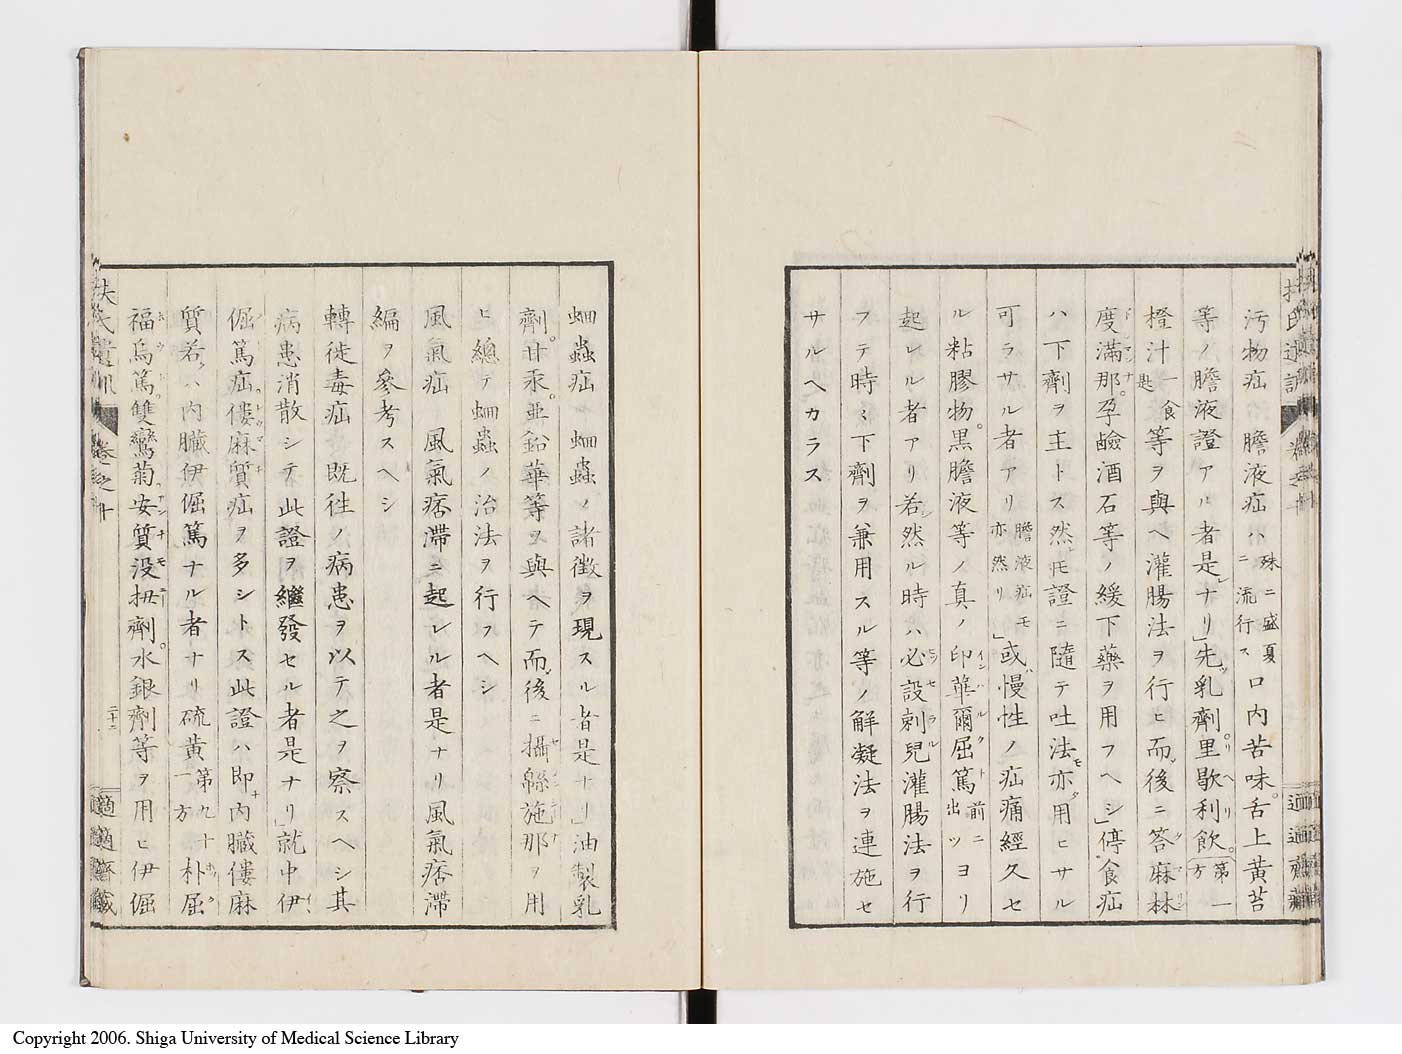 汚物疝 膽液疝ト 殊ニ盛夏ニ流行ス 口内苦味。舌上黄苔
等ノ膽液證アル者是レナリ」先ツ乳劑。里歇利飲。第一方
橙汁 一是食 等ヲ與ヘ灌腸法ヲ行ヒ而ノ後ニ答麻林
度滿那。孕鹼酒石等ノ緩下藥ヲ用フヘシ」停食疝
ハ下劑ヲ主トス然レ𪜈證ニ隨テ吐法モ亦タ用ヒサル
可ラサル者アリ 膽液疝モ亦然リ」或ハ慢性ノ疝痛經久セ
ル粘膠物。黒膽液等ノ真ノ印華爾屈篤 前ニ出ツ ヨリ
起レル者アリ若シ然ル時ハ必設剌兒灌腸法ヲ行
フテ時ミ下劑ヲ兼用スル等ノ解凝法ヲ連施セ
サルヘカラス
蛔蟲疝 蛔蟲ノ諸徴ヲ現スル者是ナリ」油製乳
劑。甘汞。亜鉛華等ヲ與ヘテ而ノ後ニ攝緜施那ヲ用
ヒ總テ蛔蟲ノ治法ヲ行フヘシ
風氣疝 風氣痞滯ニ起レル者是ナリ風氣痞滯
編ヲ參考スヘシ
轉徙毒疝 既往ノ病患ヲ以テ之ヲ察スヘシ其
病患消散シテ此證ヲ繼發セル者是ナリ」就中伊
倔篤疝。僂麻質疝ヲ多シトス此證ハ即チ内臓僂麻
質若クハ内臓伊倔篤ナル者ナリ硫黄 第九十一方 朴屈
福烏篤。雙鸞菊。安質没扭劑。水銀劑等ヲ用ヒ伊倔
扶氏遺訓 卷之十 二十二 適適齋藏